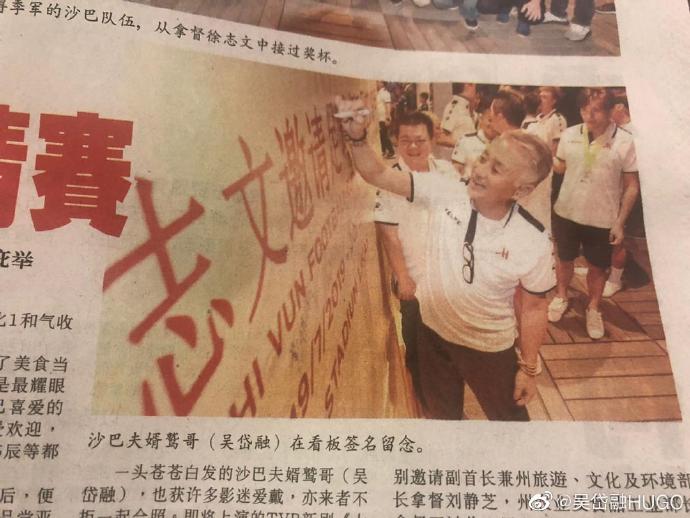 季军的沙巴队伍，从拿督徐志文中接过奖杯。
賽
志文邀请
HI VUN FOOT
19/7/2019
STADIUM
沙巴夫婿鹫哥（吴岱融）在看板签名留念。
比1和气收
了美食当
是最耀眼
己喜爱的
受欢迎，
辰等都
后，便
一头苍苍白发的沙巴夫婿鹫哥（吴
岱融），也获许多影迷爱戴，亦来者不
拒一起合照。即将上演的TVB新剧《
别邀请副首长兼州旅遊、文化及环境部
长拿督刘静芝，州
@吴岱融HUGO